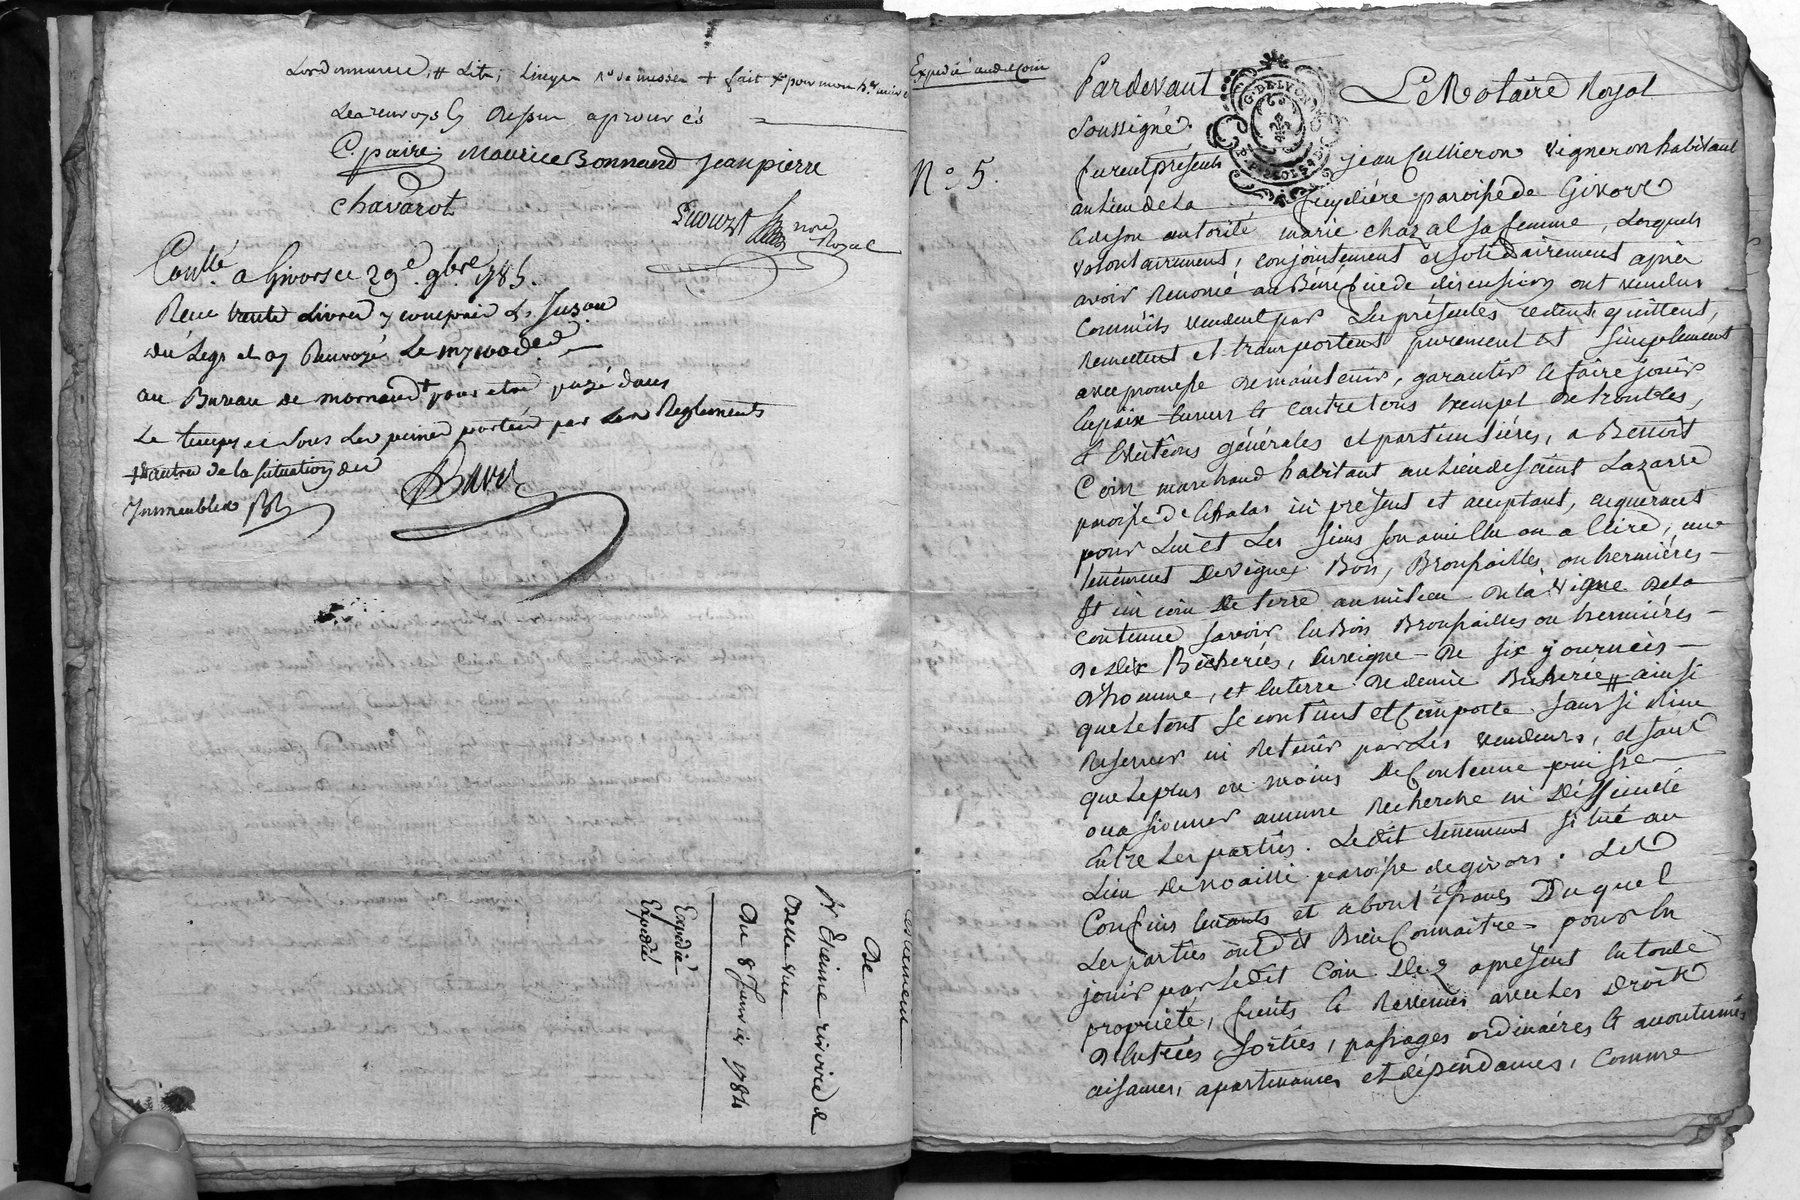 Lordonnance, # dits,
Les renvoys cy dessus aprouvés
C. paire. Maurice Bonnand jean pierre
Chavarot
noe Royal
Conllé a Givors ce 29e 9bre 1785.
Reçu trente Livres y compris
au Bureau de mornand + pour etre payé dans
Le temps et sous les peines portées par les Reglements
+ de la situation des
Immeubles
testament
De
Sr Etienne rivoire de
Belle vue
Du 8 Janvier 1784
Expédié
Expédié
Expedié audt Coin
No 5.
Pardevant Le Notaire Royal
Soussigné.
G. DE LYON
furent presents jean Cullieron vigneron habitant
au lieu de la paroisse de Givors
& de son autorité marie chazal sa femme, Lesquels
volontairement, conjointement et solidairement après
avoir Renoncé au Bénéfice de discussion ont vendus
Comme ils vendent par Les présentes cedent, quittent,
Remettent et transportent purement et simplement
avec promesse de maintenir, garantir & faire jouir
en paix envers & contre tous trouples,
& Evictions générales et particulières, a Benoit
Coin marchand habitant au lieu de saint Lazarre
paroisse de Chalas ici present et acceptant, acquerant
pour Lui et Les siens son ami Elu ou a Elire, un
tenement De vignes Bois, Broussailles ou hermières
et un coin De terre au milieu De la vigne De la
contenue savoir le Bois Broussailles ou hermières
De dix Bicherées, la vigne De six journées
D'homme, et la terre De demie Bicherée # ainsi
que Le tout Se contient et Comporte sans s'y rien
Reserver ni Retenir par Les vendeurs, et sans
que Le plus ou moins De Contenue puisse
occasionner aucune Recherche ni Difficulté
entre Les parties. Le dit tenement situé au
Lieu De noaillé paroisse de givors. Les
Confins tenants et aboutissants Duquel
Les parties ont dit Bien Connaitre pour en
jouir par Le dit Coin Dez apresent en toute
propriété, fruits & Revenus avec Les Droits
D'entrées, Sorties, passages ordinaires & accoutumés
aisances, apartenances et dépendances, Comme